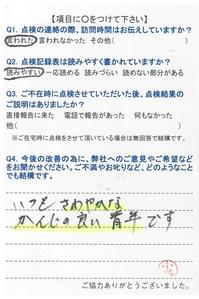 【項目に〇をつけて下さい】
Q1. 点検の連絡の際、訪問時間はお伝えしていますか?
言われた 言われなかった その他( )
Q2. 点検記録表は読みやすく書かれていますか?
読みやすい 一応読める 読みづらい 読めない部分がある
Q3. ご不在時に点検させていただいた後、点検結果の
ご説明はありましたか?
直接報告に来た 電話で報告があった 何もなかった
他( )
※ご在宅時に点検をさせて頂いている場合は無回答で結構です。
Q4. 今後の改善の為に、弊社へのご意見やご希望など
をお聞かせください。ご不満やお叱りなど、どのようなこと
でも結構です。
いつも さわやかな
かんじの良い 青年です
ご協力ありがとうございました。